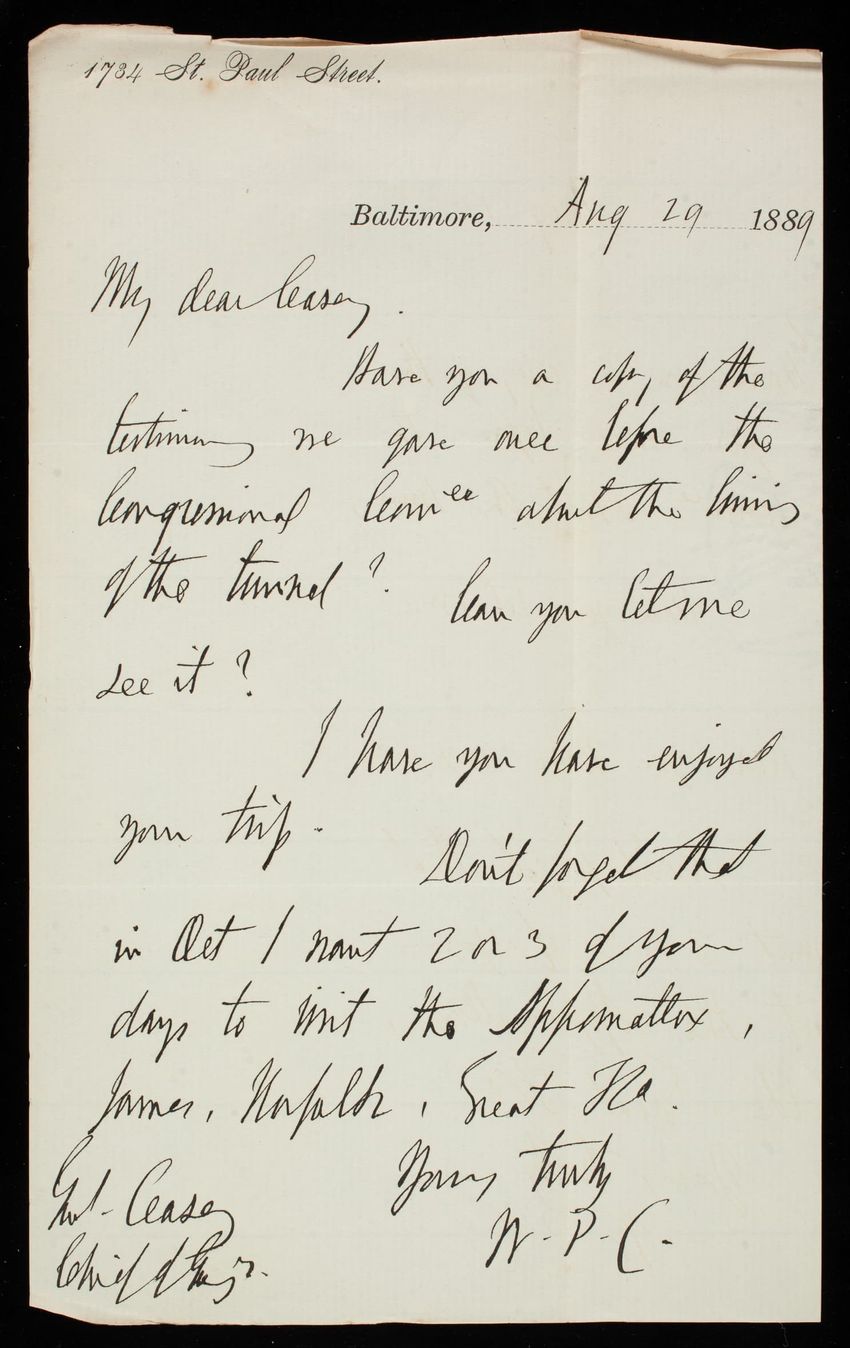 1734 St. Paul Street.
Baltimore, Aug 29 1889
My dear Casey.
Have you a copy of the
testimony we gave once before the
Congressional Comee about the lining
of the tunnel? Can you let me
see it?
I hope you have enjoyed
your trip.
Don't forget that
in Oct I want 2 or 3 of your
days to visit the Appomattox,
James, Norfolk,
Yours truly
W. P. C.
Genl. Casey
Chief of Engrs.